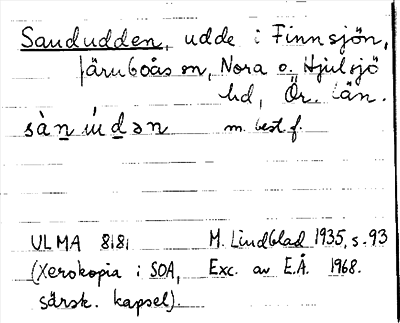 Sandudden, udde i Finnsjön,
Järnboås sn, Nora o. Hjulsjö
hd, Ör. län.
sàn ú́dən m. best. f.
ULMA 8181 M. Lindblad 1935, s. 93
(Xerokopia i SOA, Exc. av E.Å. 1968.
särsk. kapsel).